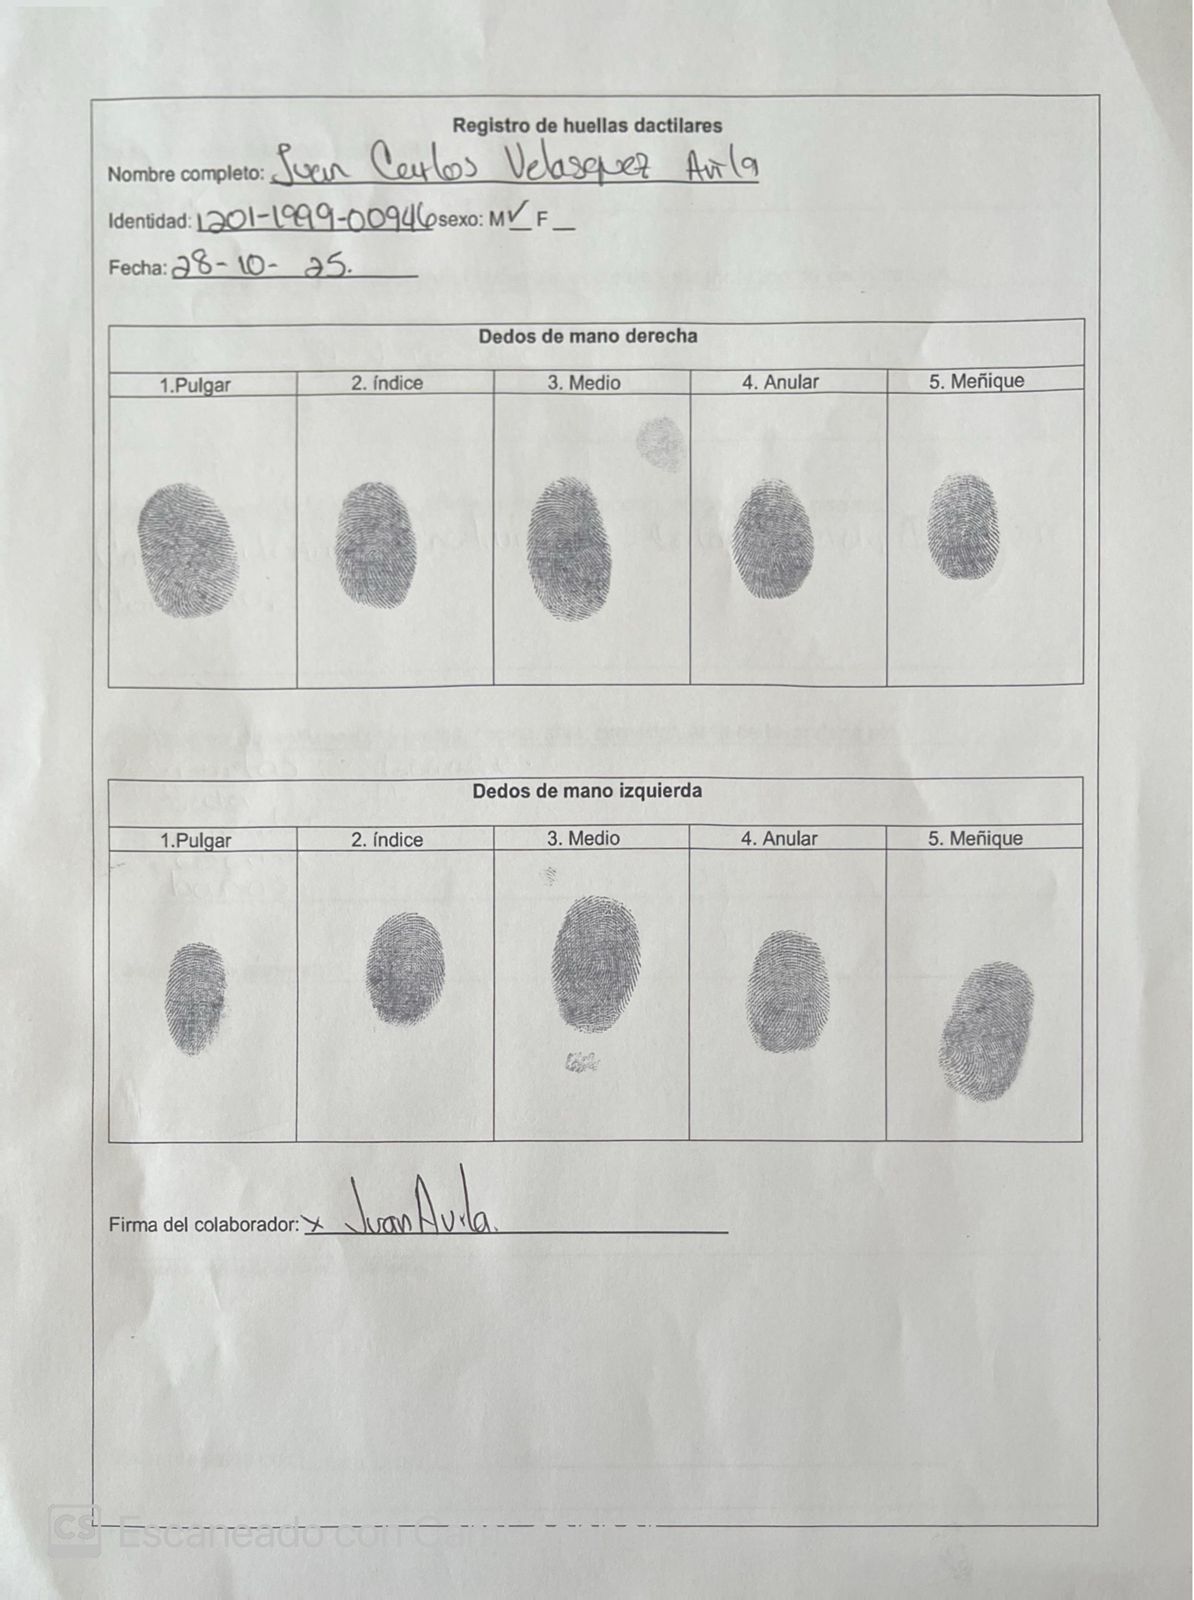 Registro de huellas dactilares
Nombre completo: Juan Carlos Velasquez Avila
Identidad: 1201-1999-00946 sexo: M✓ F_
Fecha: 28-10-25.
Dedos de mano derecha
1.Pulgar 2. índice 3. Medio 4. Anular 5. Meñique
Dedos de mano izquierda
1.Pulgar 2. índice 3. Medio 4. Anular 5. Meñique
Firma del colaborador: x Juan Avila.
CS Escaneado con